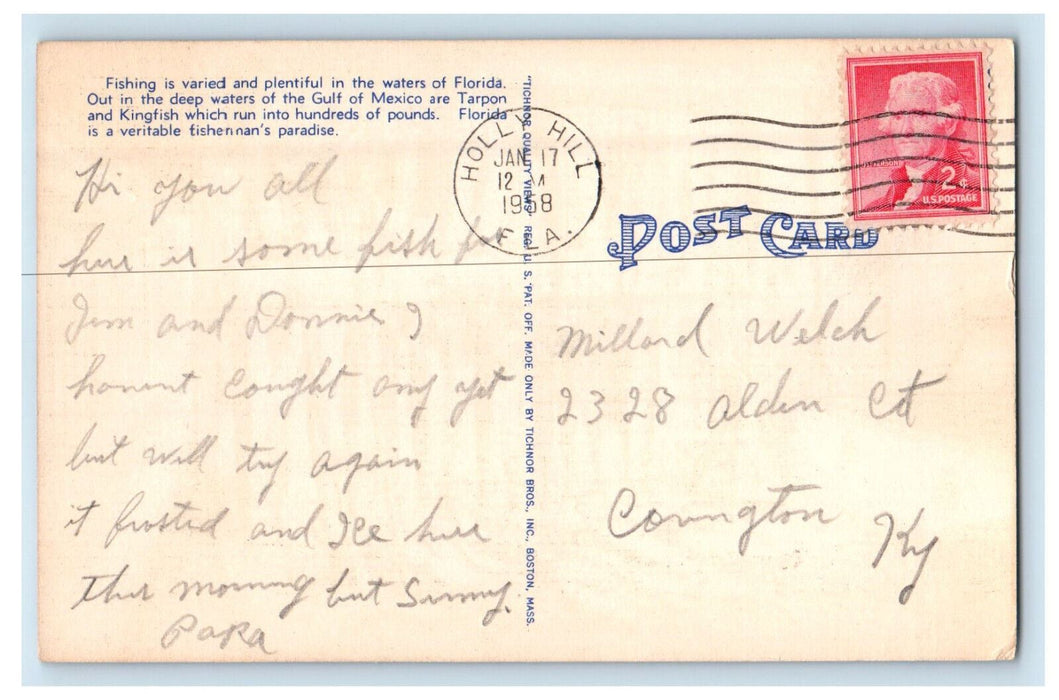 Fishing is varied and plentiful in the waters of Florida.
Out in the deep waters of the Gulf of Mexico are Tarpon
and Kingfish which run into hundreds of pounds. Florida
is a veritable fisherman's paradise.
Hi you all
here is some fish for
Jim and Donnie I
havent cought any yet
but will try again
it frosted and Ice here
this morning but Sunny.
PaPa
"TICHNOR QUALITY VIEWS" REG. U. S. PAT. OFF. MADE ONLY BY TICHNOR BROS., INC., BOSTON, MASS.
HOLLY HILL
JAN 17
12 M
1958
FLA.
JEFFERSON
2¢
U.S. POSTAGE
POST CARD
Millard Welch
2328 Alden Ct
Covington
Ky